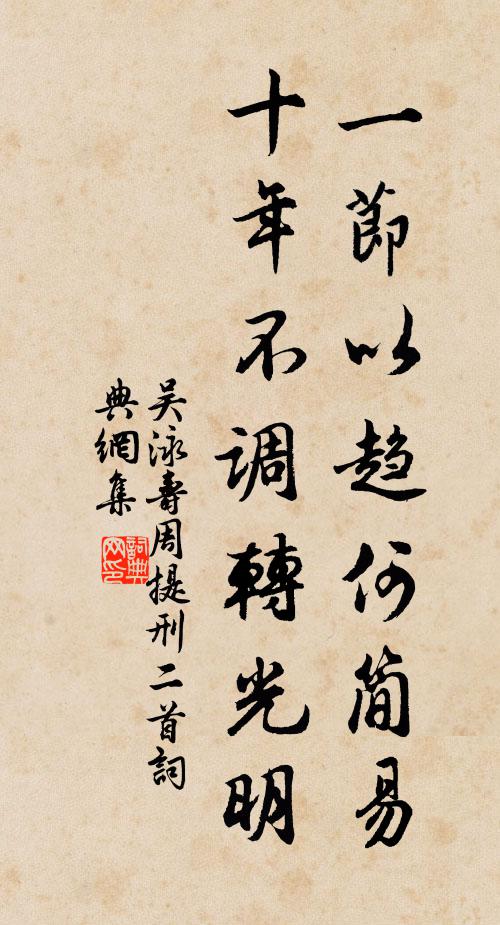 一節以趨何簡易
十年不調轉光明
吴泳壽周提刑二首詞
典網集
詞典
网印